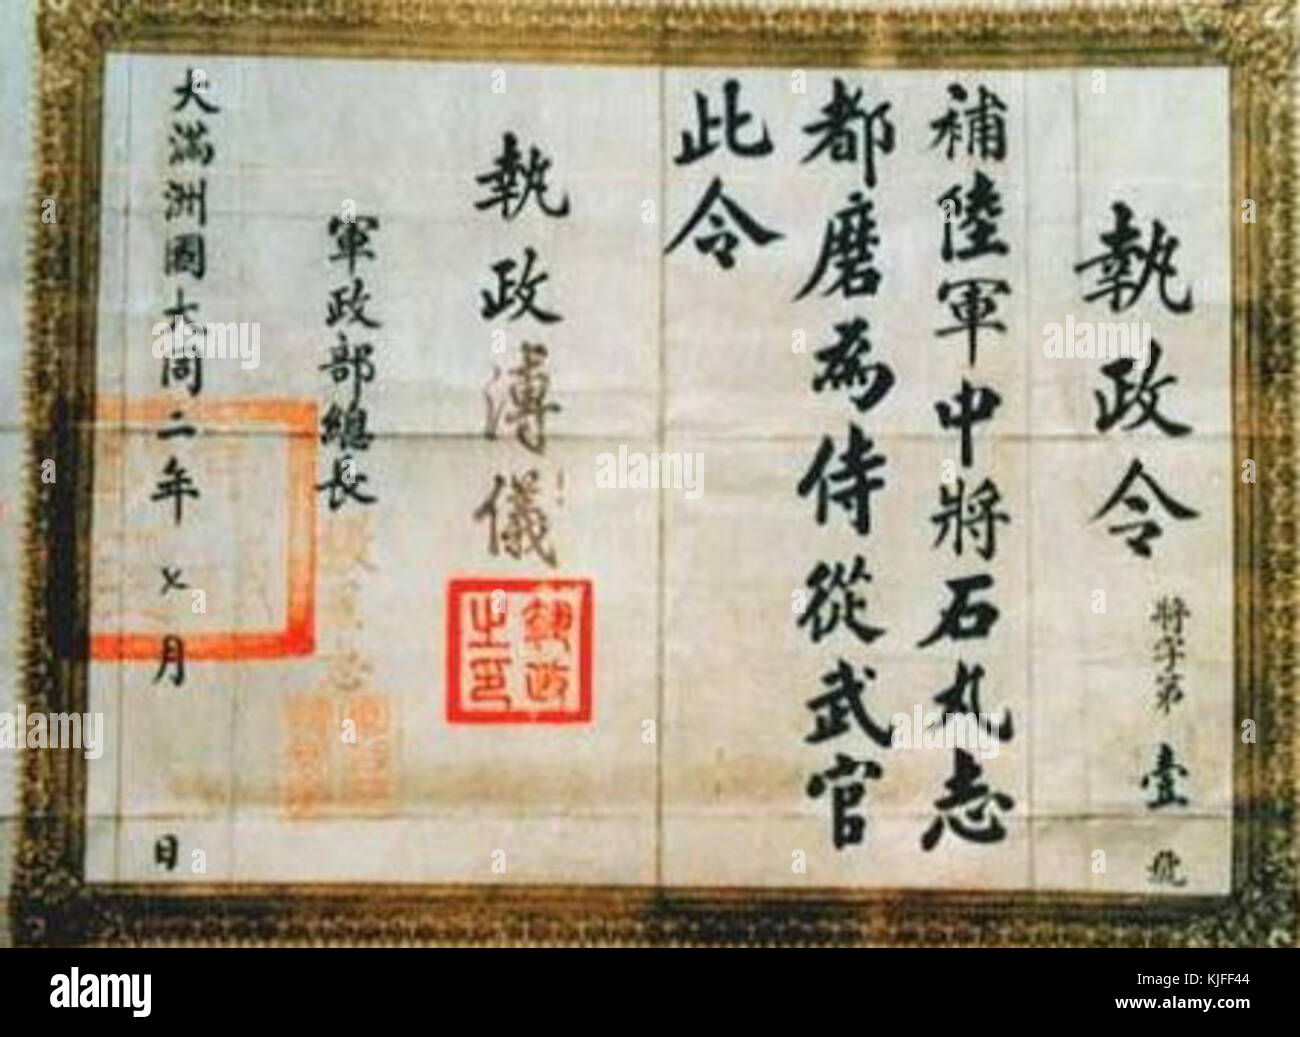 執政令
將字第壹號
補陸軍中將石丸志
都磨為侍從武官
此令
執政溥儀
執政之印
軍政部總長
大滿洲國大同二年七月 日
alamy
Image ID: KJFF44
www.alamy.com